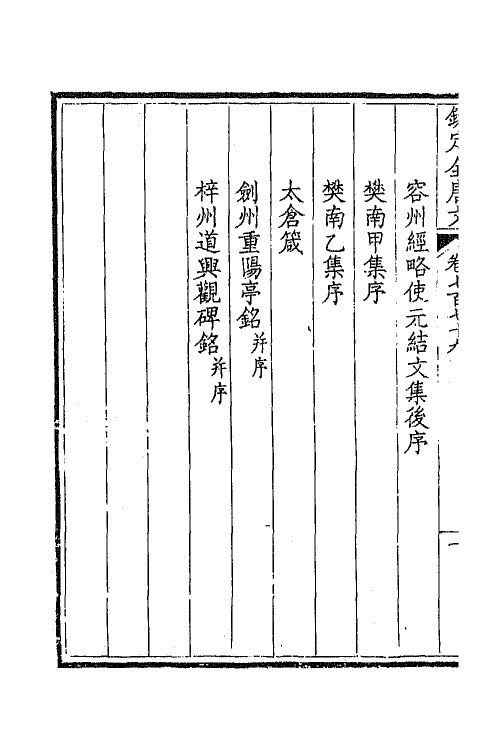 欽定全唐文 卷七百七十九 一
容州經略使元結文集後序
樊南甲集序
樊南乙集序
太倉箴
劍州重陽亭銘并序
梓州道興觀碑銘并序